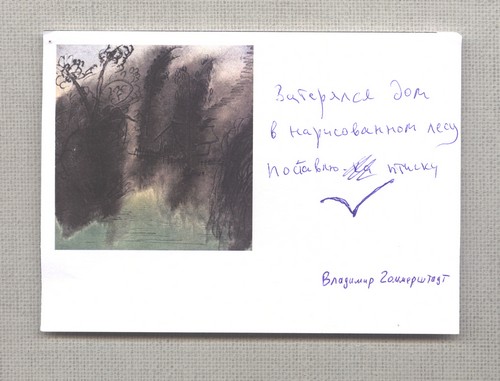 Затерялся дом
в нарисованном лесу
поставлю птичку
Владимир Гоммерштадт